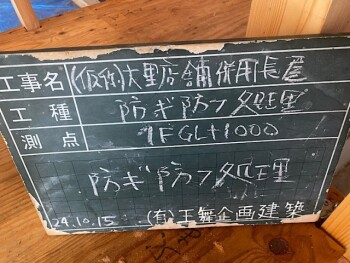 工事名 (仮称)大里店舗併用長屋
工種 防ギ防フ処理
測点 1FGL+1000
防ギ防フ処理
24.10.15 (有)王舞企画建築